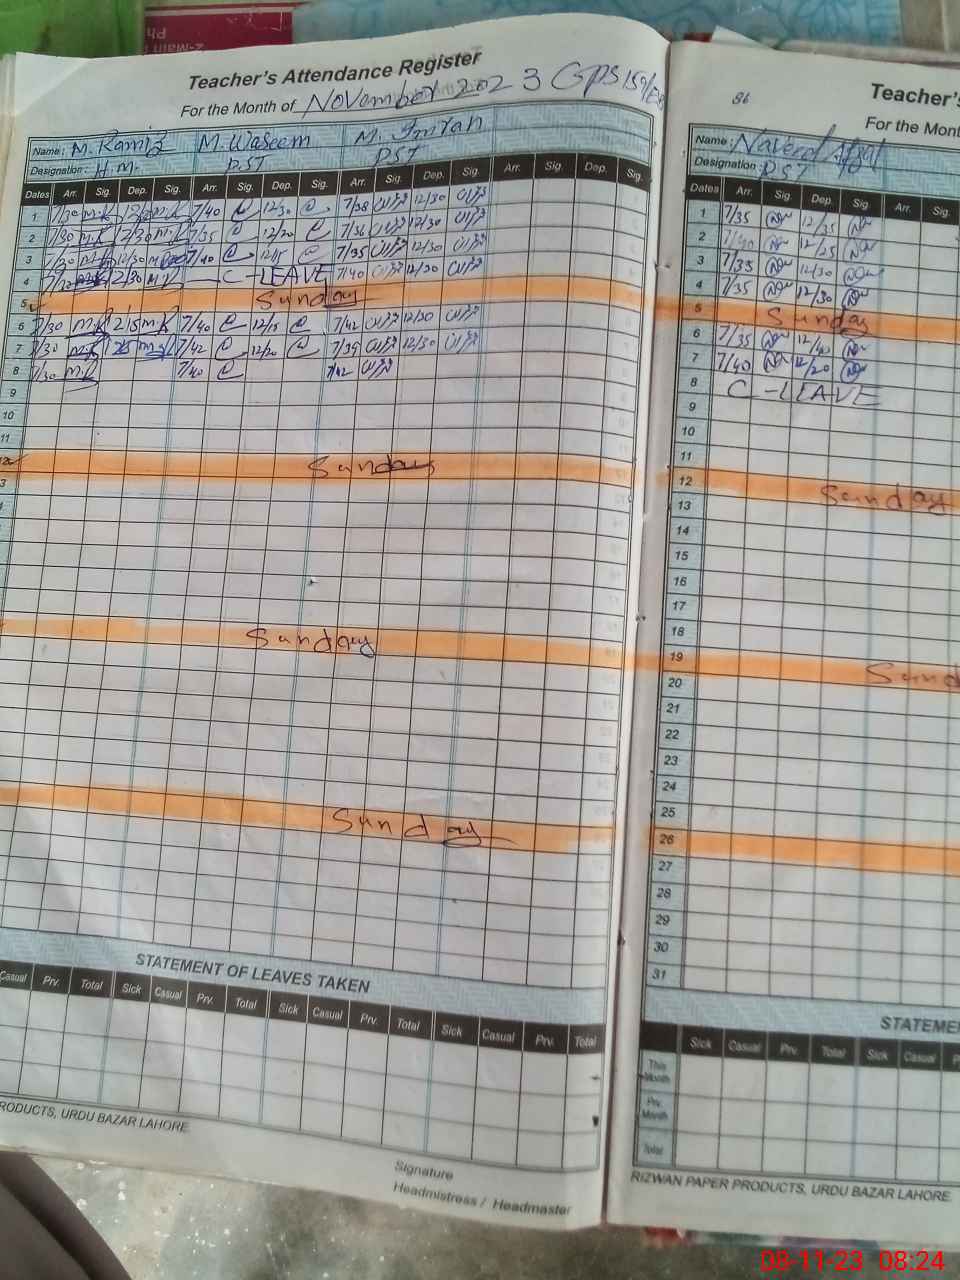 Teacher's Attendance Register
For the Month of November 2023 GPS
Name: M. Ramiz M. Waseem M. Imran
Designation: H.M. PST PST
Dates Arr. Sig. Dep. Sig. Arr. Sig. Dep. Sig. Arr. Sig. Dep. Sig. Arr. Sig. Dep. Sig.
1 7/30 M.K 7/40 12/30 7/38 12/30
2 7/30 M.K 12/30 M.K 7/35 12/20 7/36 12/30
3 7/30 12/30 7/40 12/15 7/35 12/30
4 12/30 M.K C-LEAVE 7/40 12/30
5 Sunday
6 7/30 M.K M.K 7/40 12/15 7/42 12/30
7 7/30 M.K 7/42 12/20 7/39 12/30
8 7/30 M.K 7/40 7/42
9
10
11
12 Sunday
Sunday
Sunday
STATEMENT OF LEAVES TAKEN
Casual Prv. Total Sick Casual Prv. Total Sick Casual Prv. Total Sick Casual Prv. Total
PRODUCTS, URDU BAZAR LAHORE
Signature
Headmistress / Headmaster
86
Teacher's
For the Mont
Name: Naveed Afzal
Designation: PST
Dates Arr. Sig. Dep. Sig. Arr. Sig.
1 7/35 12/35
2 7/40 12/25
3 7/35 12/30
4 7/35 12/30
5 Sunday
6 7/35 12/40
7 7/40 12/20
8 C-LEAVE
9
10
11
12 Sunday
13
14
15
16
17
18
19 Sund
20
21
22
23
24
25
26
27
28
29
30
31
STATEME
Sick Casual Prv. Total Sick Casual P
This Month
Prv. Month
Total
RIZWAN PAPER PRODUCTS, URDU BAZAR LAHORE
08-11-23 08:24